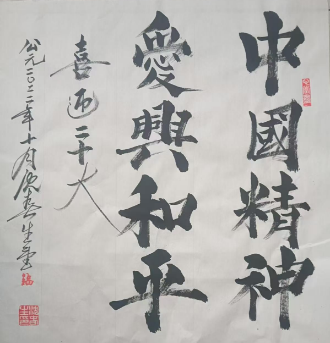 中國精神
愛興和平
喜迎二十大
公元二〇二二年十月